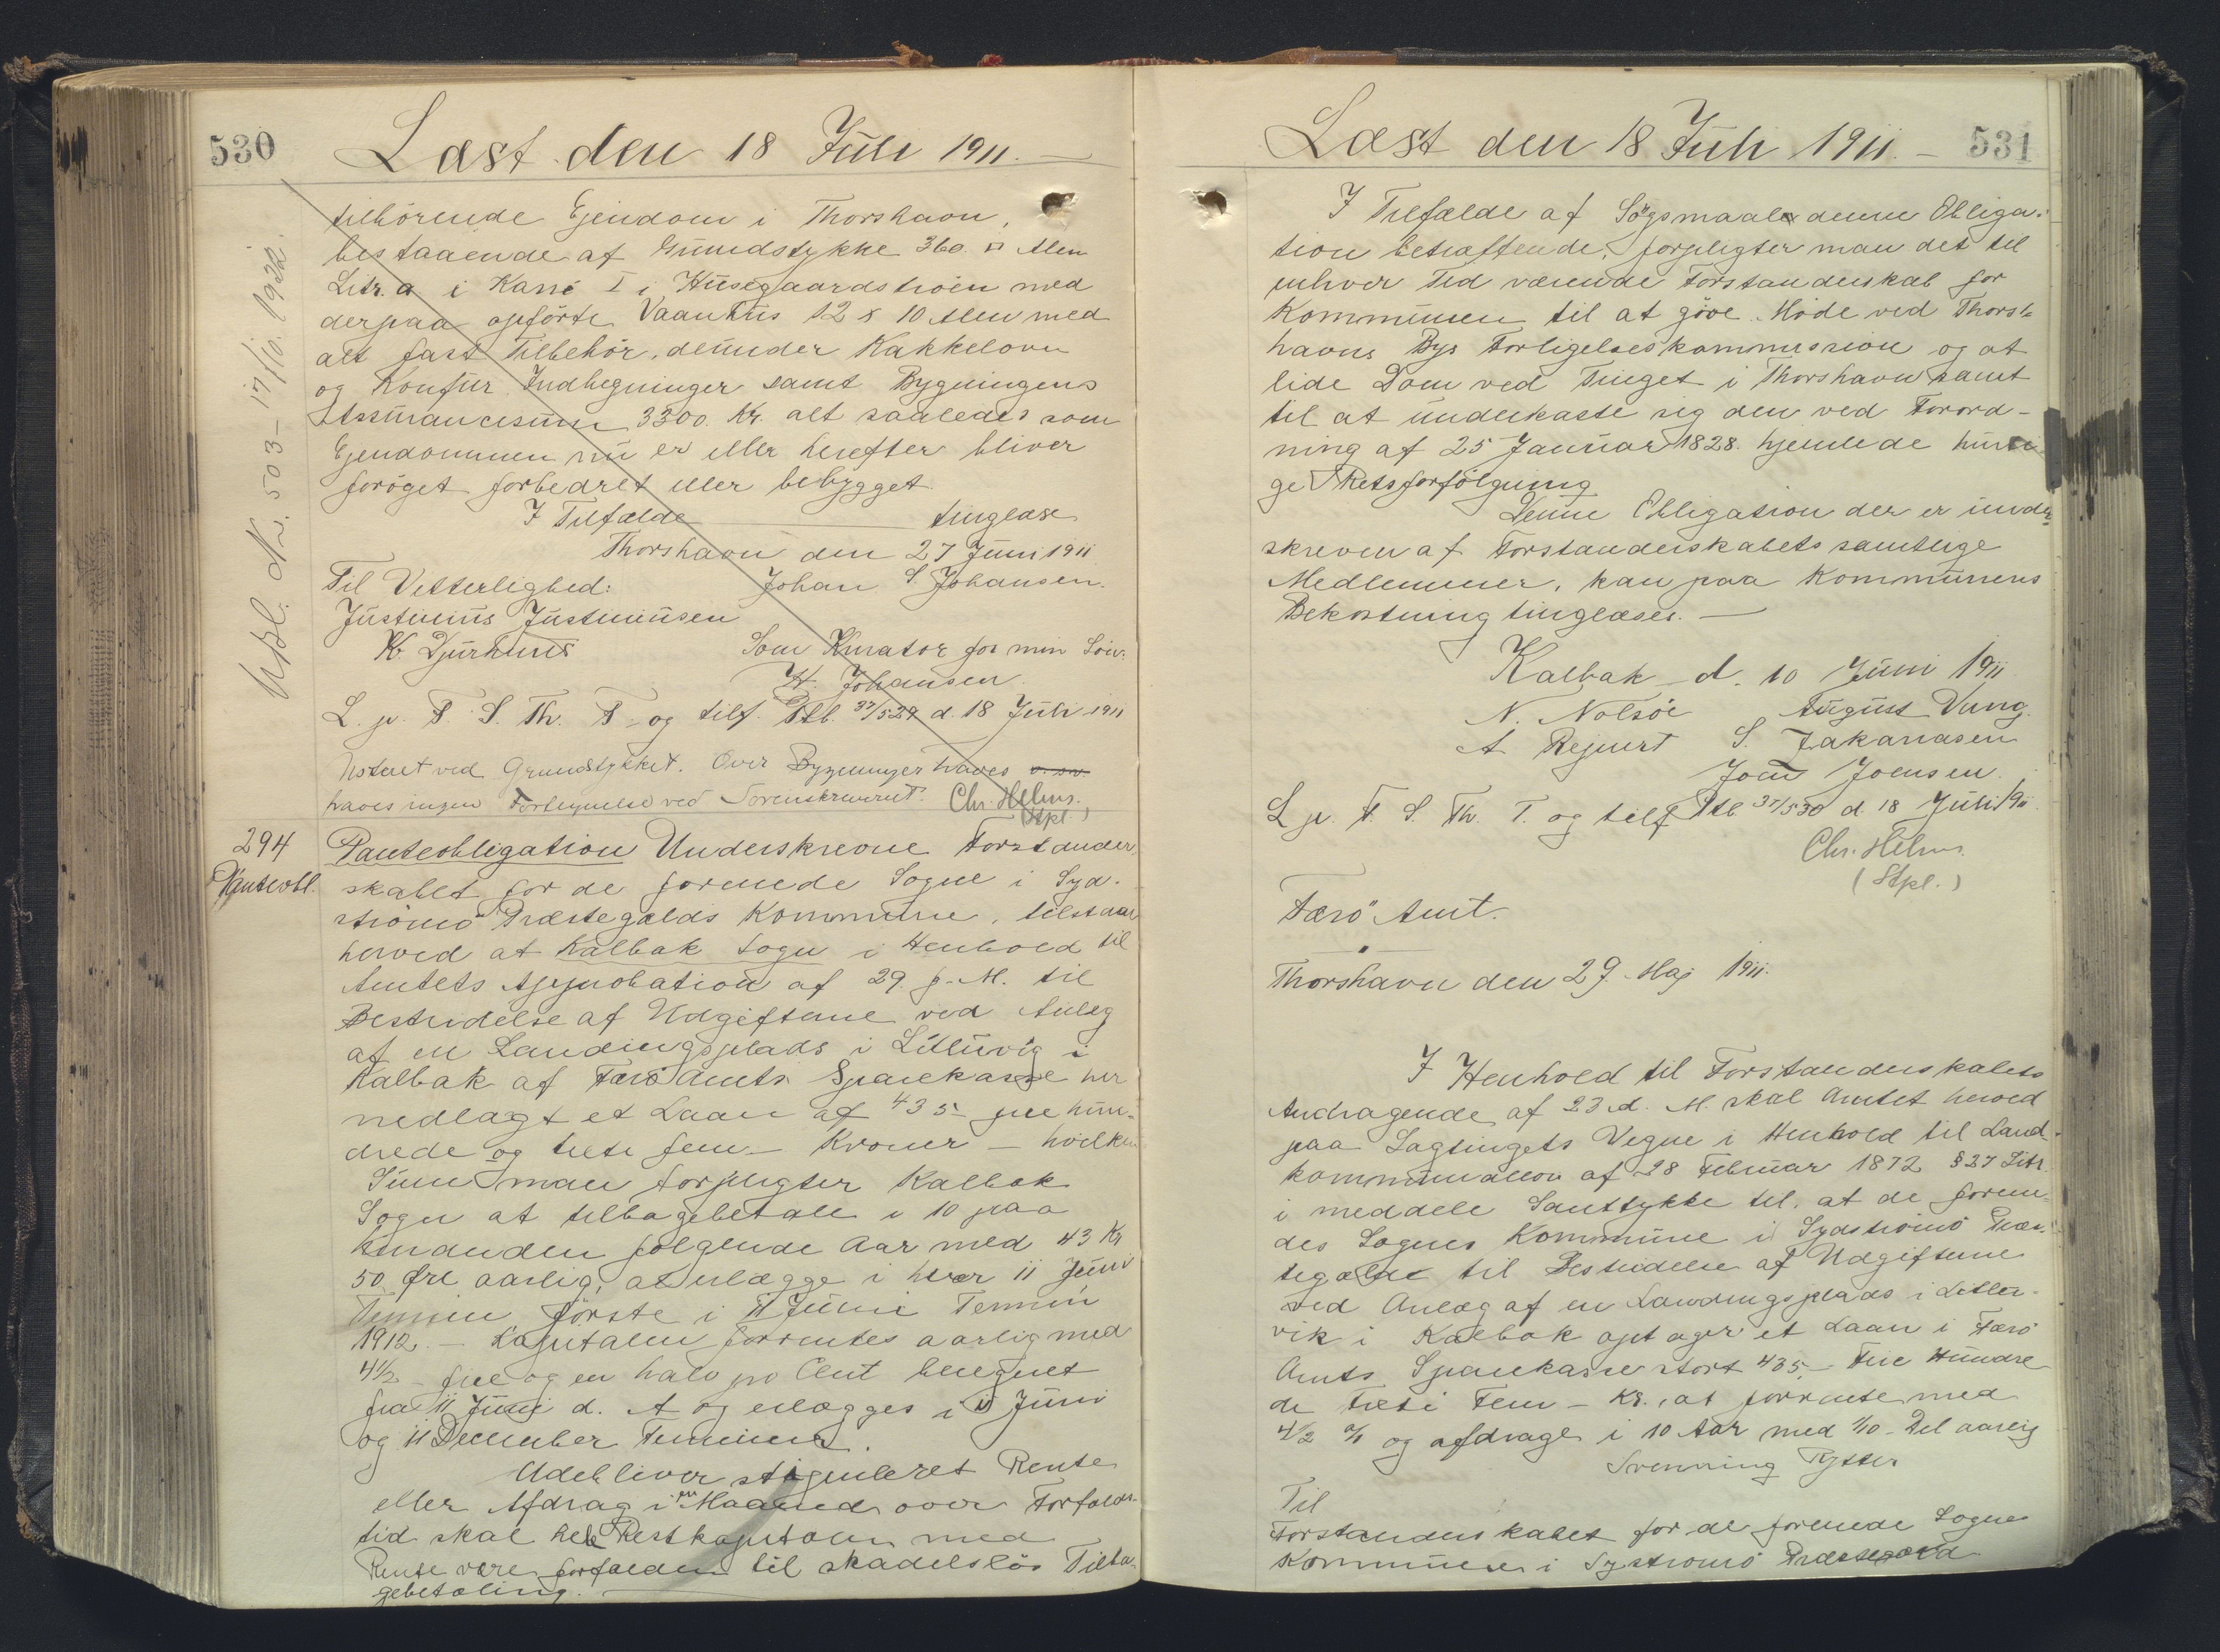 530
Læst den 18 Juli 1911.
Udsl. Nr. 503 - 17/10. 1922.
tilhörende Ejendom i Thorshavn,
bestaaende af Grundstykke 360 □ Alen
Litr. a. i Karré I i Husegaardströen med
derpaa opförte Vaanhus 12 x 10 Alen med
alt fast Tilbehör, derunder Kakkelovn
og Komfur Indhegninger samt Bygningens
Assurancesum 3300. Kr. alt saaledes som
Ejendommen nu er eller herefter bliver
foröget forbedret eller bebygget
I Tilfælde tinglæse
Thorshavn den 27 Juni 1911
Til Vitterlighed: Johan S. Johansen.
Justinus Justinusen
K. Djurhuus Som Kurator for min Sön:
H. Johansen
L. p. F. S. Th. T. og tilf. Ptb. 37/529 d. 18 Juli 1911
Noteret ved Grundstykket. Over Bygninger haves
haves ingen ved Sorenskriveriet. Chr. Helms.
(Stpl.)
294 Panteobligation Underskrevne Forstander
Panteobl. skabet for de forenede Sogne i Syd-
strömö Præstegælds Kommune, tilstaar
herved at Kalbak Sogn i Henhold til
Amtets Approbation af 29. f. M. til
Bestridelse af Udgifterne ved Anlæg
af en Landingsplads i Litluvig i
Kalbak af Færö Amts Sparekasse her
nedlagt et Laan af 435 fire hun-
drede og treti fem - Kroner - hvilken
Sum man forpligter Kalbak
Sogn at tilbagebetale i 10 paa
hinanden fölgende Aar med 43 Kr
50 Øre aarlig, at erlægge i hver 11 Juni
Termin förste i 11 Juni Termin
1912. - Kapitalen forrentes aarlig med
4½ - fire og en halv pro Cent beregnet
fra 11 Juni d. A og erlægges i 11 Juni
og 11 December Terminer.
Udebliver stipuleret Rente
eller Afdrag i en Maaned over Forfalds-
tid skal hele Restkapitalen med
Rente være forfalden til skadeslös Tilba-
gebetaling.
Læst den 18 Juli 1911. - 531
I Tilfælde af Sögsmaal denne Obliga-
tion betræffende, forpligter man det til
enhver Tid værende Forstanderskab for
Kommunen til at göre Möde ved Thors-
havns Bys Forligelseskommission og at
lide Dom ved Tinget i Thorshavn samt
til at underkaste sig den ved Forord-
ning af 25 Januar 1828. hjemlede hurti
ge Retsforfölgning
Denne Obligation der er under
skreven af Forstanderskabets samtlige
Medlemmer, kan paa Kommunens
Bekostning tinglæses. -
Kalbak d. 10 Juni 1911
N. Nolsöe August Vang.
A Rejnert S. Zakariasen
Joen Joensen.
L p. F. S. Th. T. og tilf Ptb 37/530 d 18 Juli 1911.
Chr. Helms.
(Stpl.)
Færö Amt.
Thorshavn den 29. Maj 1911.
I Henhold til Forstanderskabets
Andragende af 23 d. M. skal Amtet herved
paa Lagtingets Vegne i Henhold til Land-
kommunallov af 28 Februar 1872 § 27 Litr.
i meddele Samtykke til, at de foren-
des Sognes Kommune i Sydströmö Præs-
tegæld til Bestridelse af Udgifterne
ved Anlæg af en Landingsplads i Litlu-
vik i Kalbak optager et Laan i Færö
Amts Sparekasse stort 435 - Fire Hundre
de Treti Fem - Kr., at forrente med
4½ % og afdrages i 10 Aar med 1/10 - Del aarlig
Svenning Rytter
Til
Forstanderskabet for de forenede Sognes
Kommune i Systromö Præstegæld